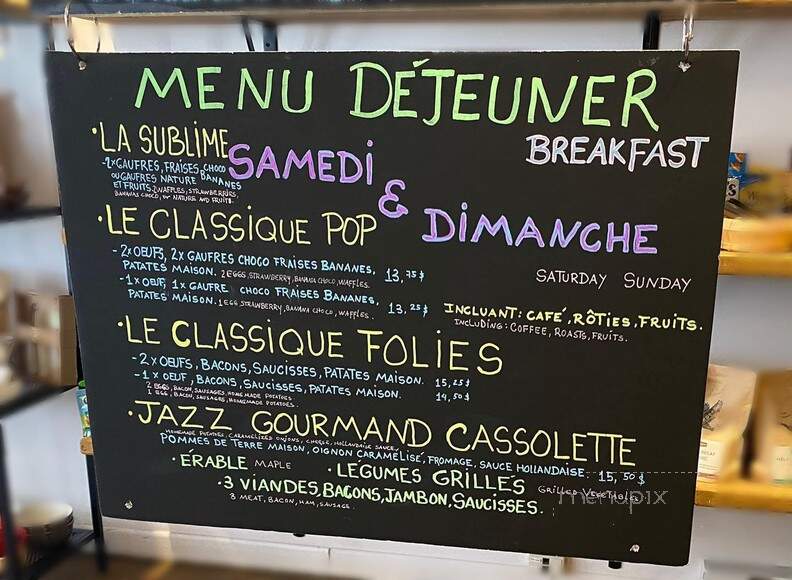 MENU DÉJEUNER
BREAKFAST
•LA SUBLIME
SAMEDI
& DIMANCHE
SATURDAY SUNDAY
-2x GAUFRES, FRAISES, CHOCO
OU GAUFRES NATURE BANANES
ET FRUITS. 2 WAFFLES, STRAWBERRIES,
BANANAS CHOCO, or NATURE AND FRUITS.
•LE CLASSIQUE POP
-2x OEUFS, 2x GAUFRES CHOCO FRAISES BANANES,
PATATES MAISON. 2 EGGS, STRAWBERRY, BANANA CHOCO, WAFFLES. 13,75$
-1x OEUF, 1x GAUFRE CHOCO FRAISES BANANES,
PATATES MAISON. 1 EGG STRAWBERRY, BANANA CHOCO, WAFFLES. 13,25$
INCLUANT: CAFÉ, RÔTIES, FRUITS.
INCLUDING: COFFEE, ROASTS, FRUITS.
•LE CLASSIQUE FOLIES
-2x OEUFS, BACONS, SAUCISSES, PATATES MAISON. 15,25$
-1x OEUF, BACONS, SAUCISSES, PATATES MAISON. 14,50$
2 EGGS, BACON, SAUSAGES, HOMEMADE POTATOES.
1 EGG, BACON, SAUSAGES, HOMEMADE POTATOES.
•JAZZ GOURMAND CASSOLETTE
HOMEMADE POTATOES, CARAMELIZED ONIONS, CHEESE, HOLLANDAISE SAUCE.
POMMES DE TERRE MAISON, OIGNON CARAMÉLISÉ, FROMAGE, SAUCE HOLLANDAISE. 15,50$
•ÉRABLE MAPLE •LÉGUMES GRILLÉS GRILLED VEGETABLES
•3 VIANDES, BACONS, JAMBON, SAUCISSES.
3 MEAT, BACON, HAM, SAUSAGE.
menupix